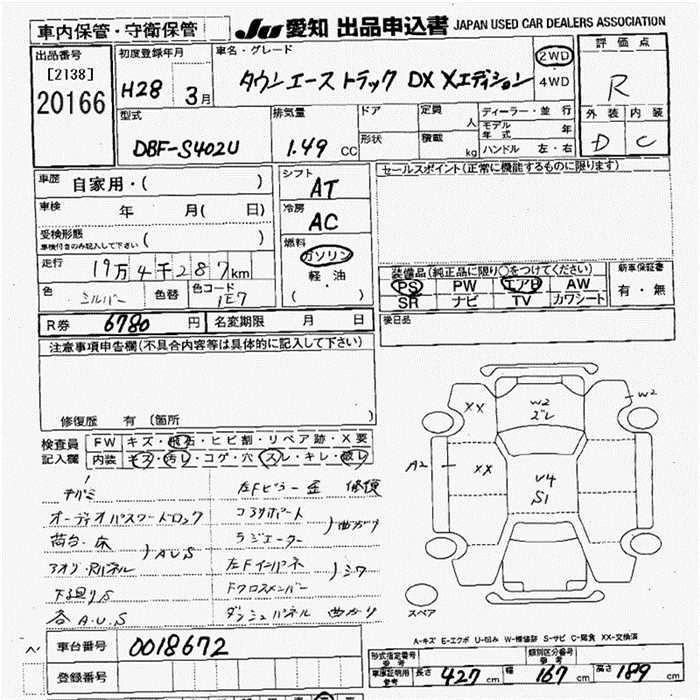 車内保管・守衛保管
JU 愛知 出品申込書 JAPAN USED CAR DEALERS ASSOCIATION
出品番号
[2138]
20166
初度登録年月
H28 3月
車名・グレード
タウンエース トラック DX Xエディション
2WD
4WD
評価点
R
外装 内装
D C
型式
DBF-S402U
排気量
1.49 CC
ドア
形状
定員 人
積載 kg
ディーラー・並行
モデル年式 年
ハンドル 左・右
車歴 自家用・( )
車検 年 月( 日)
受検形態 ( )
車検付きのみ記入して下さい
走行 19万4千287km
色 シルバー 色替 色コード 1E7
シフト AT
冷房 AC
燃料
ガソリン
軽油
( )
セールスポイント(正常に機能するものに限ります)
装備品(純正品に限り○をつけてください)
PS PW エアB AW
SR ナビ TV カワシート
新車保証書
有・無
R券 6780 円 名変期限 月 日
後日品
注意事項申告欄(不具合内容等は具体的に記入して下さい)
修復歴 有 (箇所 )
検査員
記入欄
FW キズ・飛石・ヒビ割・リペア跡・X要
内装 キズ・汚レ・コゲ・穴・スレ・キレ・破レ
オーディオパスワードロック
荷台・床
アオリ・Rパネル
)AUS
下廻りS
各A.U.S
左Fピラー歪 修復
コアサポート
ラジエーター
)曲がり
左Fインパネ
Fクロスメンバー
)シワ
ダッシュパネル 曲がり
XX
W2
ズレ
W2
A2
XX
U4
S1
スペア
A-キズ E-エクボ U-凹み W-補修跡 S-サビ C-腐食 XX-交換済
車台番号 0018672
登録番号
形式指定番号
参考
類別区分番号
参考
車庫証明用
参考
長さ 427 cm 幅 167 cm 高さ 189 cm